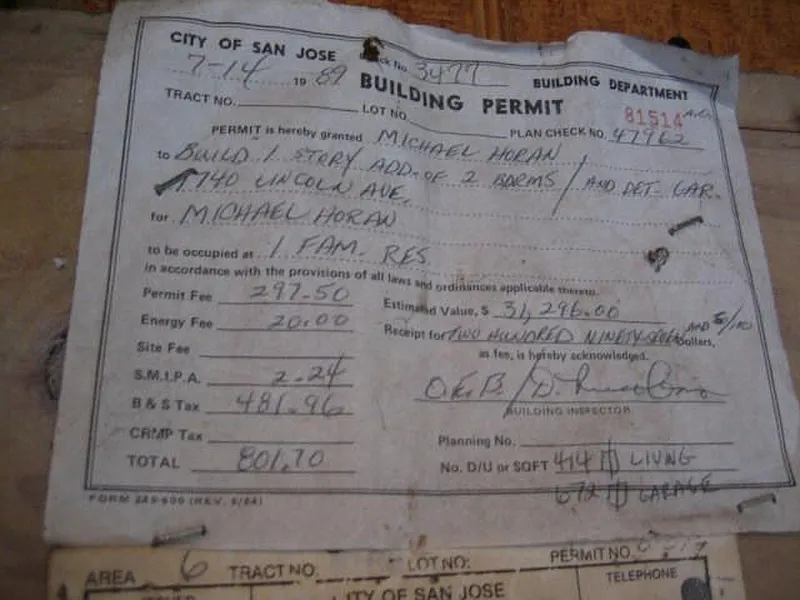 CITY OF SAN JOSE Check No. 3477 BUILDING DEPARTMENT
7-14 1989 BUILDING PERMIT
TRACT NO. LOT NO. PLAN CHECK NO. 47962
81514
PERMIT is hereby granted MICHAEL HORAN
to BUILD 1 STORY ADD. OF 2 BDRMS / AND DET. GAR.
1740 LINCOLN AVE.
for MICHAEL HORAN
to be occupied as 1 FAM. RES.
in accordance with the provisions of all laws and ordinances applicable thereto.
Permit Fee 297.50 Estimated Value, $ 31,296.00
Energy Fee 20.00 Receipt for TWO HUNDRED NINETY-SEVEN AND 50/100 Dollars,
Site Fee as fee, is hereby acknowledged.
S.M.I.P.A. 2.24
B & S Tax 481.96 BUILDING INSPECTOR
CRMP Tax Planning No.
TOTAL 801.70 No. D/U or SQFT 414 LIVING
672 GARAGE
AREA 6 TRACT NO. LOT NO. PERMIT NO.
CITY OF SAN JOSE TELEPHONE